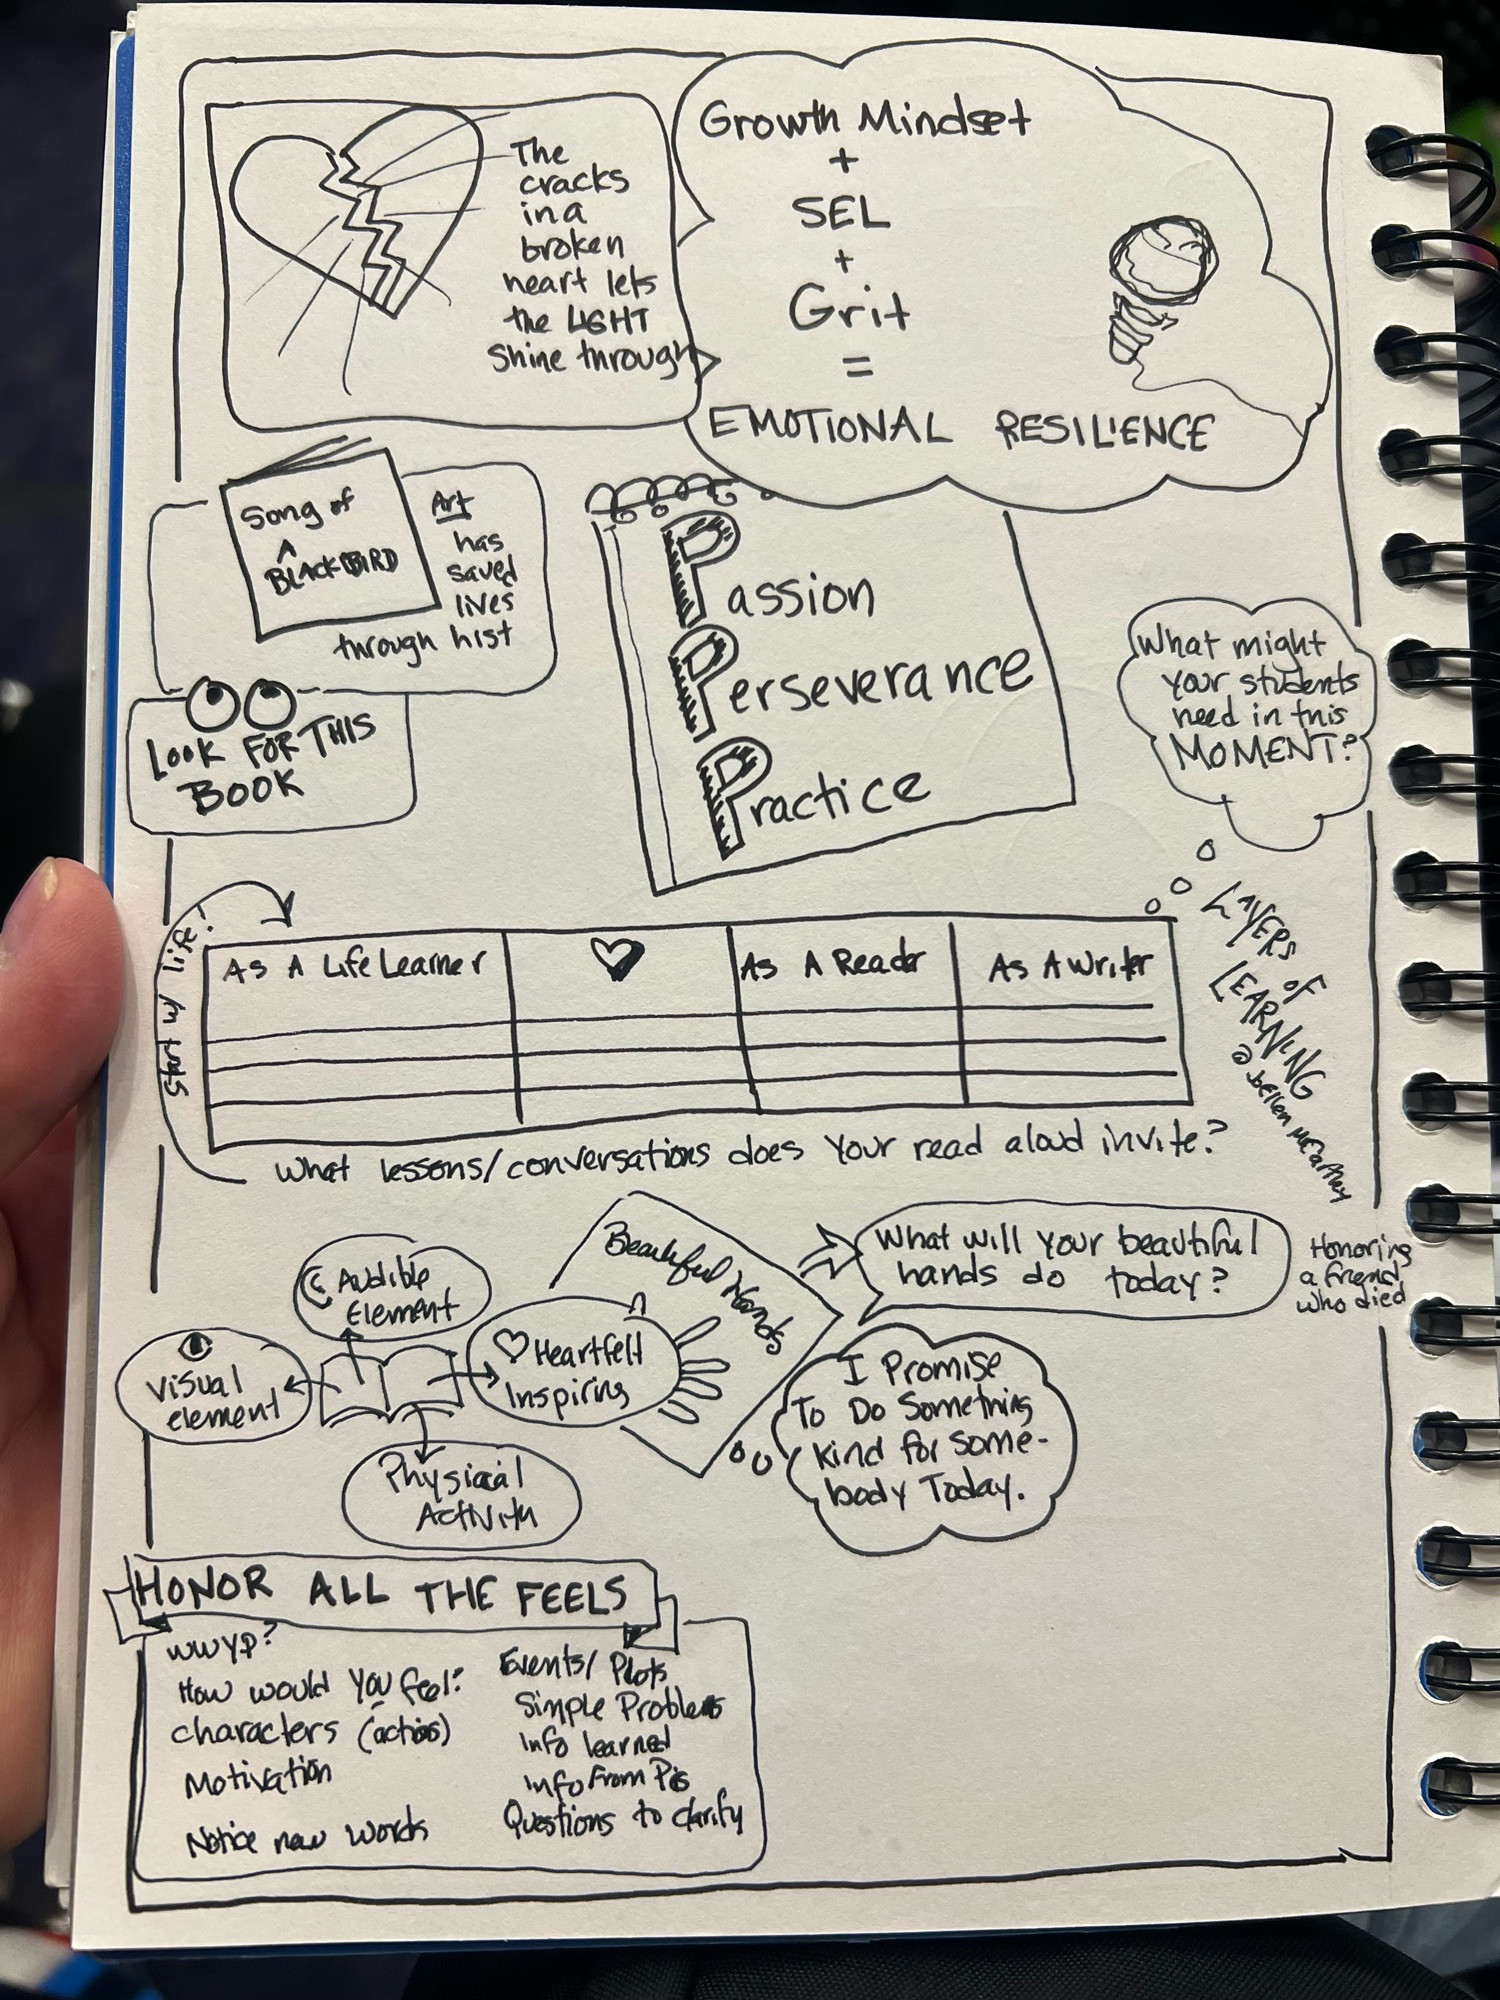 The
cracks
in a
broken
heart lets
the LIGHT
shine through
Growth Mindset
+
SEL
+
Grit
=
EMOTIONAL RESILIENCE
Song of
A
BLACKBIRD
Art
has
saved
lives
through hist
LOOK FOR THIS
BOOK
Passion
Perseverance
Practice
What might
your students
need in this
MOMENT?
LAYERS OF
LEARNING
Start w/ life!
As A Life Learner
As A Reader
As A Writer
What lessons/conversations does your read aloud invite?
Audible
Element
Visual
element
Heartfelt
Inspiring
Physical
Activity
Beautiful Hands
What will your beautiful
hands do today?
Honoring
a friend
who died
I Promise
To Do Something
kind for some-
body Today.
HONOR ALL THE FEELS
WWYD?
How would you feel?
characters (actions)
Motivation
Notice new words
Events/ Plots
Simple Problems
Info learned
Info From Pics
Questions to clarify